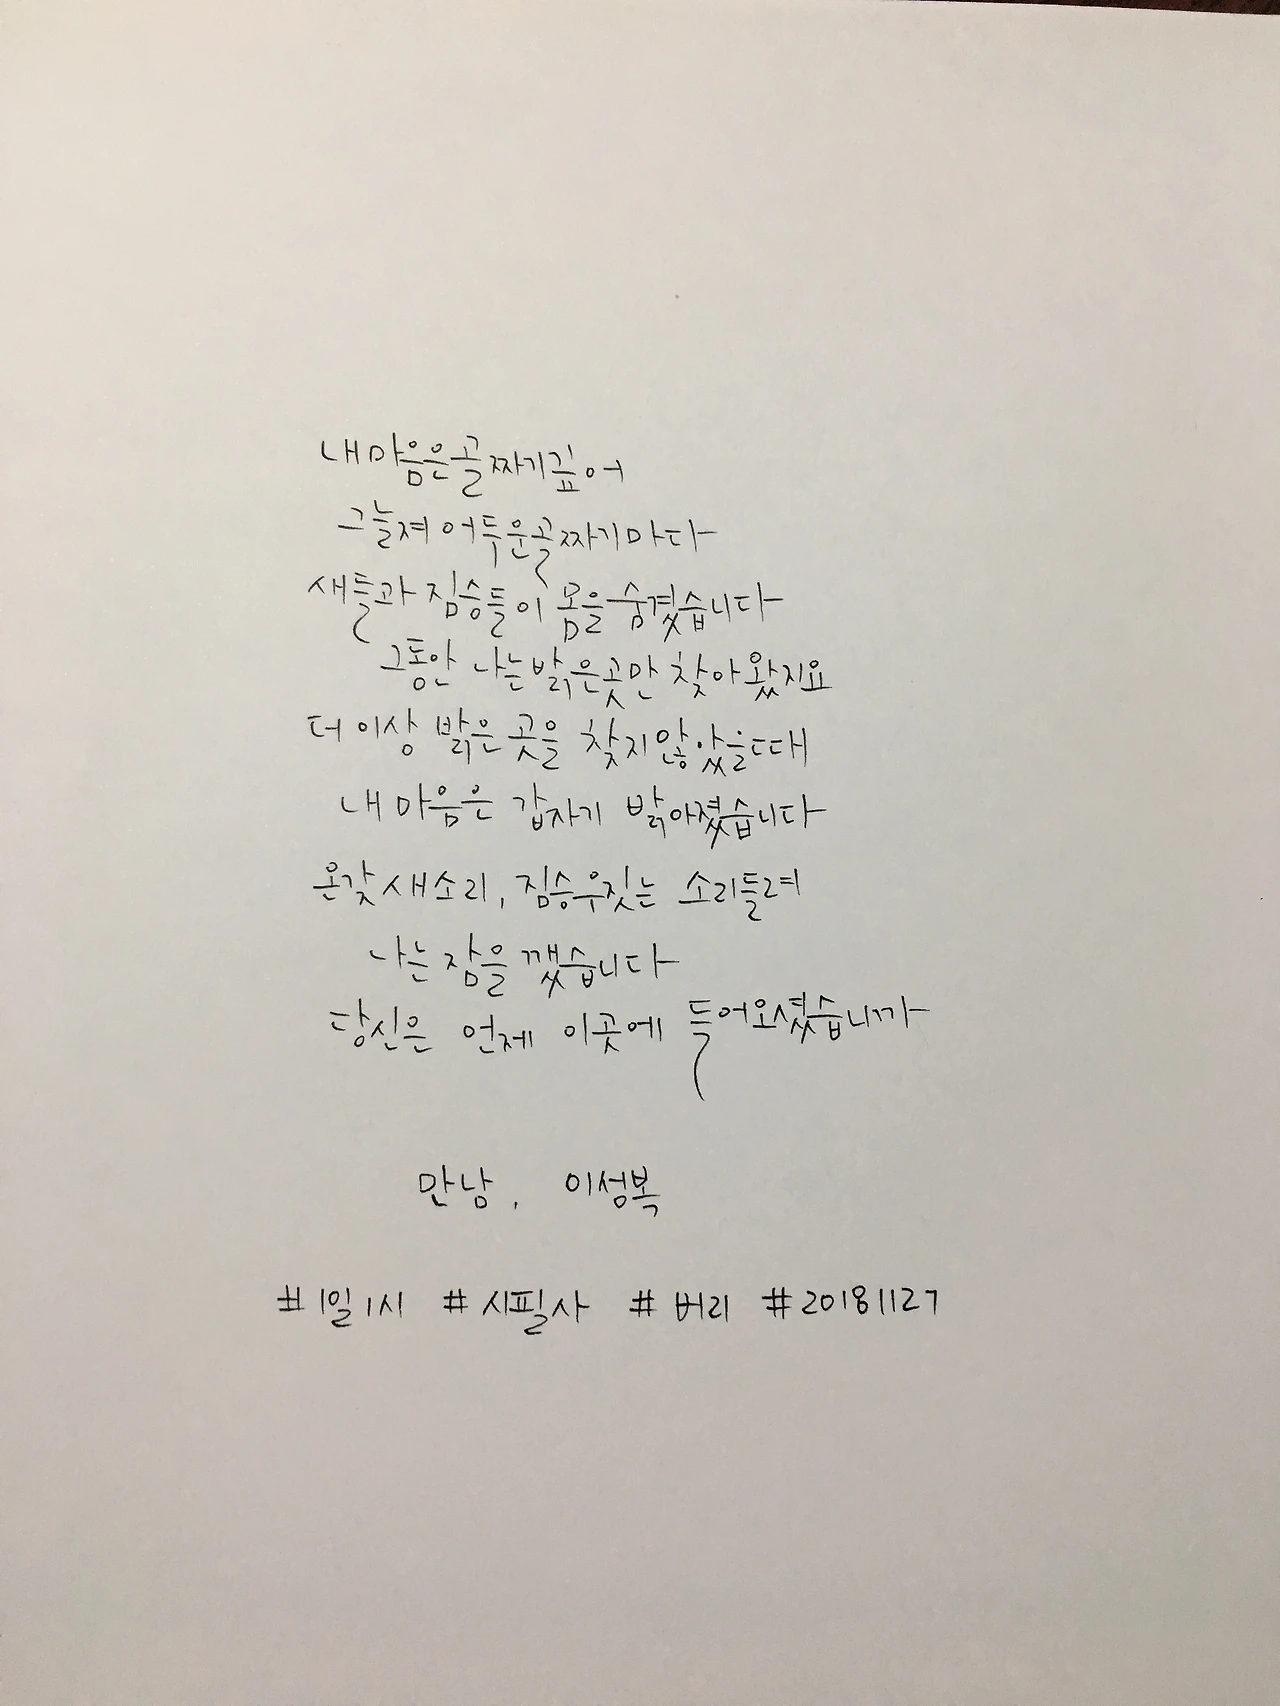 내 마음은 골짜기 깊어
그늘져 어두운 골짜기마다
새들과 짐승들이 몸을 숨겼습니다
그동안 나는 밝은 곳만 찾아왔지요
더 이상 밝은 곳을 찾지 않았을 때
내 마음은 갑자기 밝아졌습니다
온갖 새소리, 짐승 우짖는 소리 들려
나는 잠을 깼습니다
당신은 언제 이곳에 들어오셨습니까
만남, 이성복
#1일1시 #시필사 #버리 #20181127